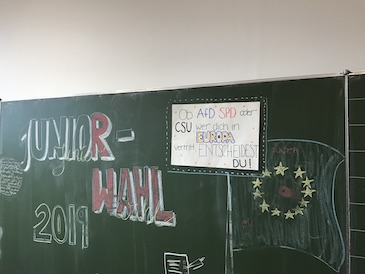 JUNIOR-
WAHL
2019
Ob AfD SPD oder
CSU wer dich in
EUROPA
vertritt
ENTSCHEIDEST
DU!